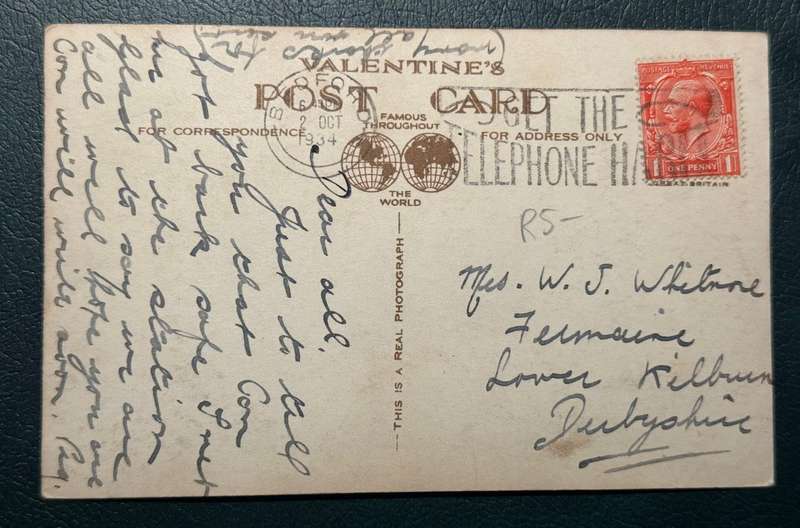 (many thanks for
all you sent)
VALENTINE'S
POST CARD
FOR CORRESPONDENCE
FAMOUS
THROUGHOUT
THE
WORLD
FOR ADDRESS ONLY
THIS IS A REAL PHOTOGRAPH
2 OCT
1934
GET THE
TELEPHONE HABIT
POSTAGE REVENUE
1 ONE PENNY 1
GREAT BRITAIN
R5-
Dear all,
Just to tell
you that Con
got back safe I met
her at the station
glad to say we are
all well hope you are
Con will write soon.
Mrs. W. J. Whitmore
Lower Kilburn
Derbyshire